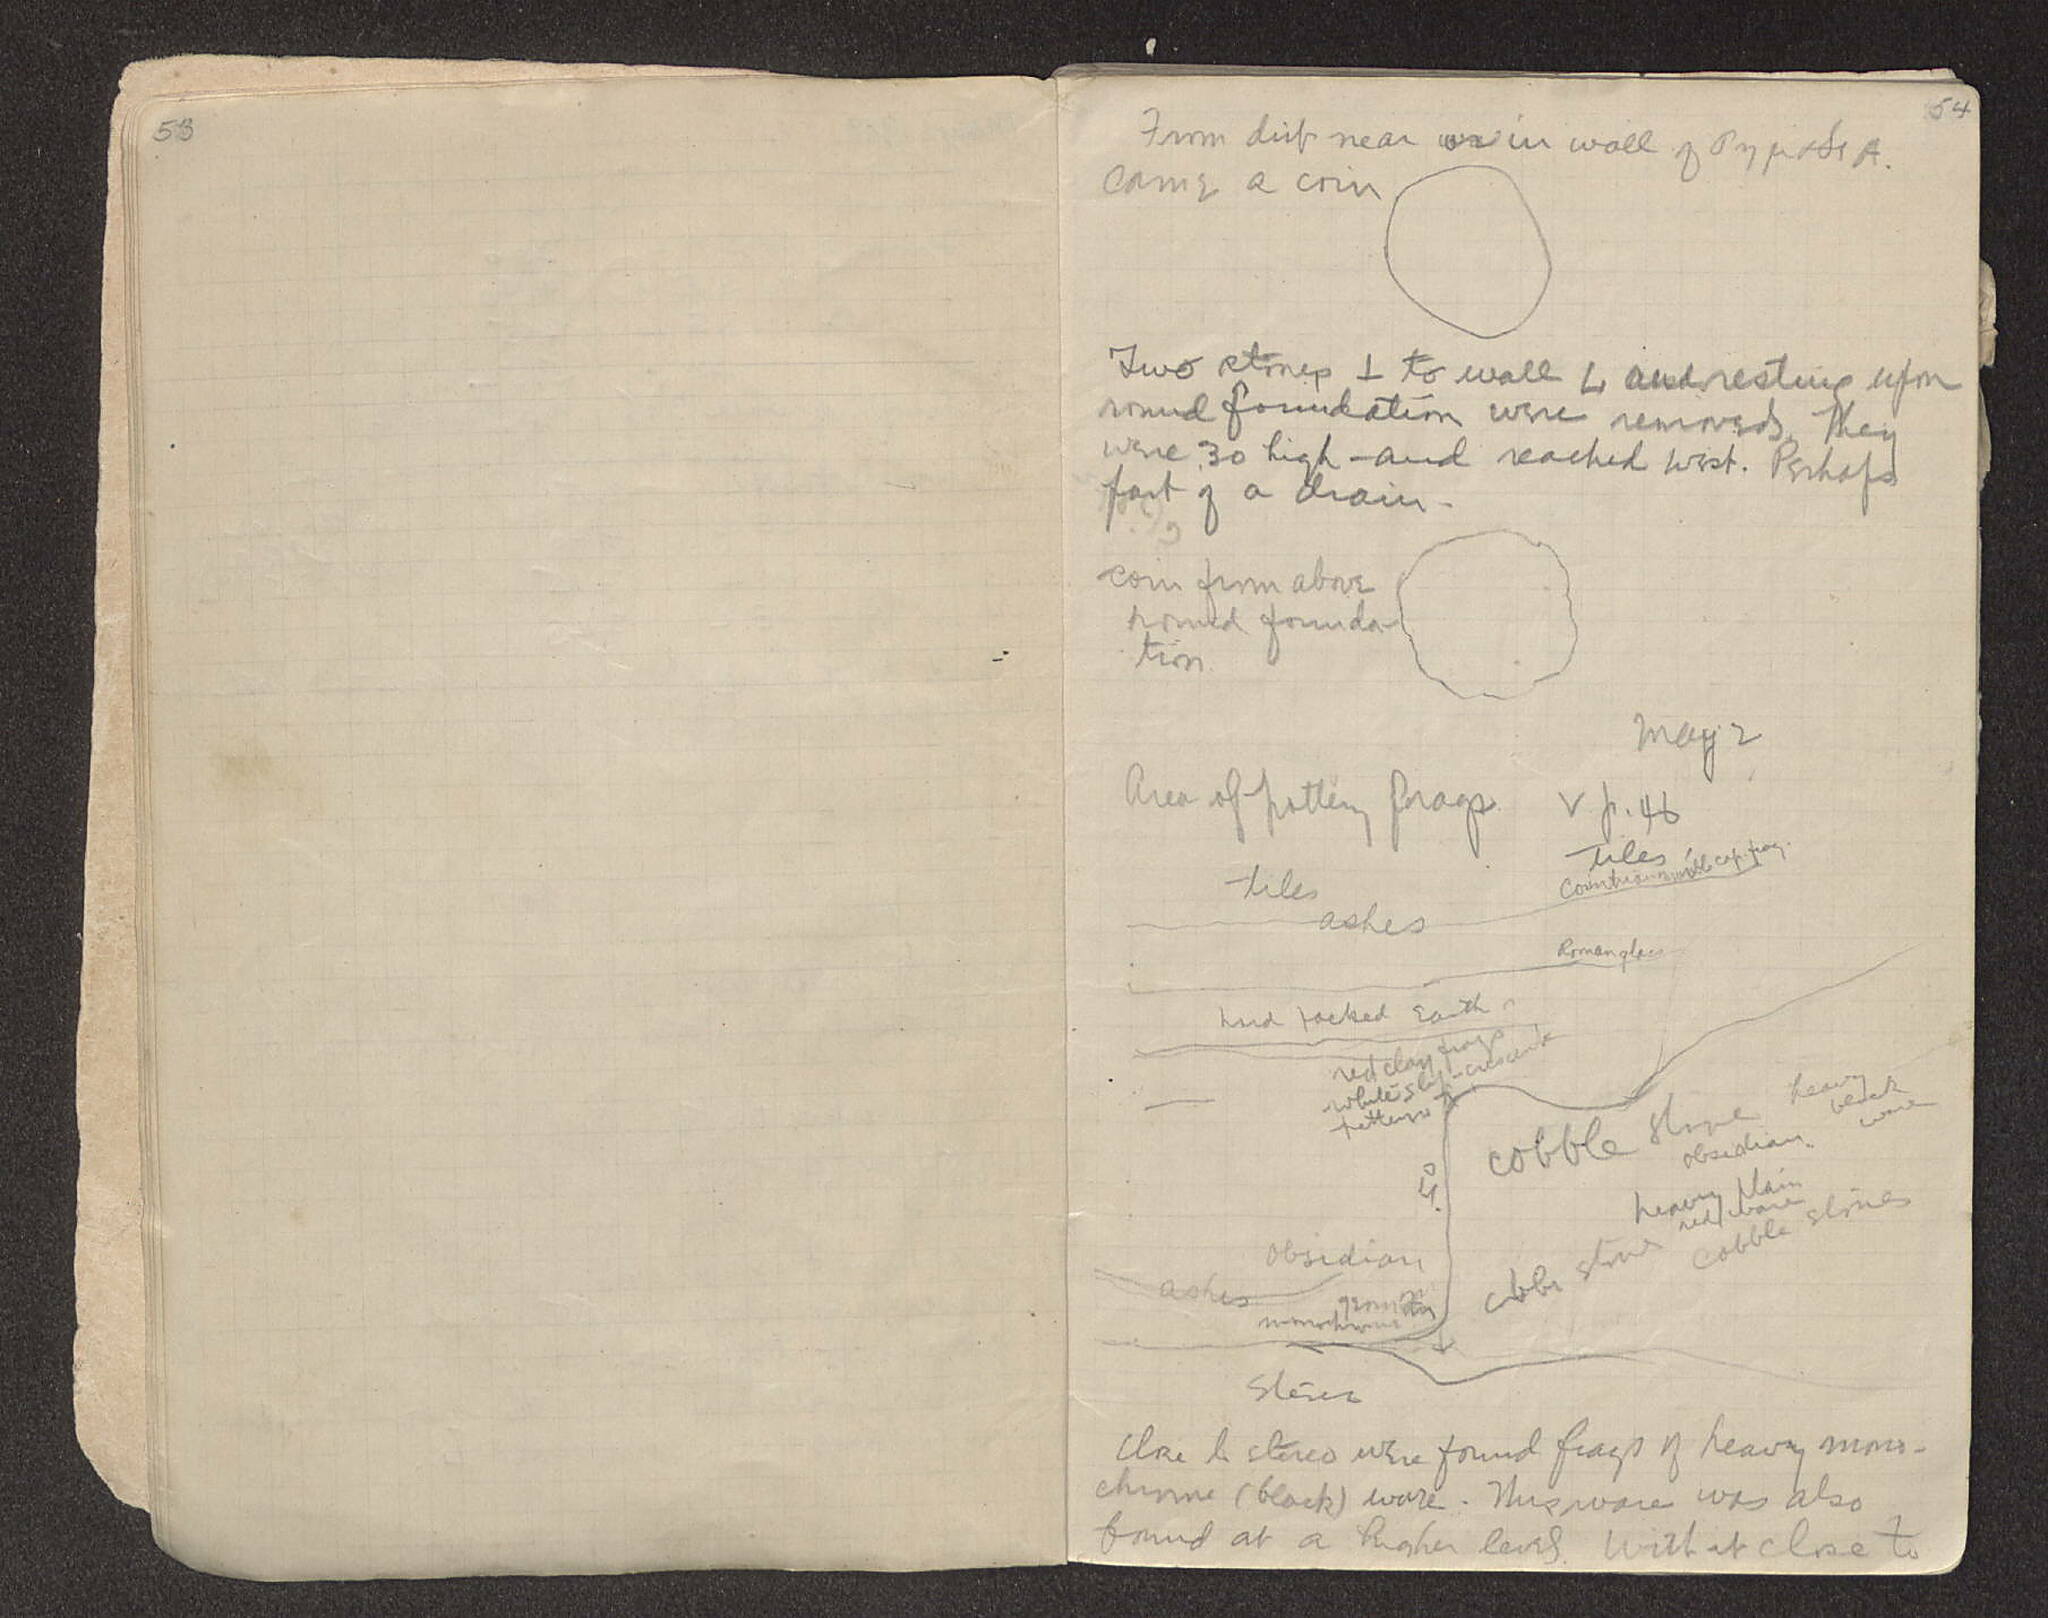 53
54
From dirt near or in wall of Pyrgos A.
came a coin
Two stones ⊥ to wall L and resting upon
round foundation were removed. They
were .30 high - and reached west. Perhaps
part of a drain -
coin from above
round founda-
tion.
May 2
Area of pottery frags. v p. 46
tiles
Corinthian cap. frag.
tiles
ashes
Roman glass
hard packed earth
red clay frags
white slip - crescent
pattern
heavy
black
ware
cobble stone
obsidian
heavy plain
red ware
cobble stones
obsidian
ashes
cobble stone
monochrome
Stereo
Close to stereo were found frags of heavy mono-
chrome (black) ware. This ware was also
found at a higher level. With it close to